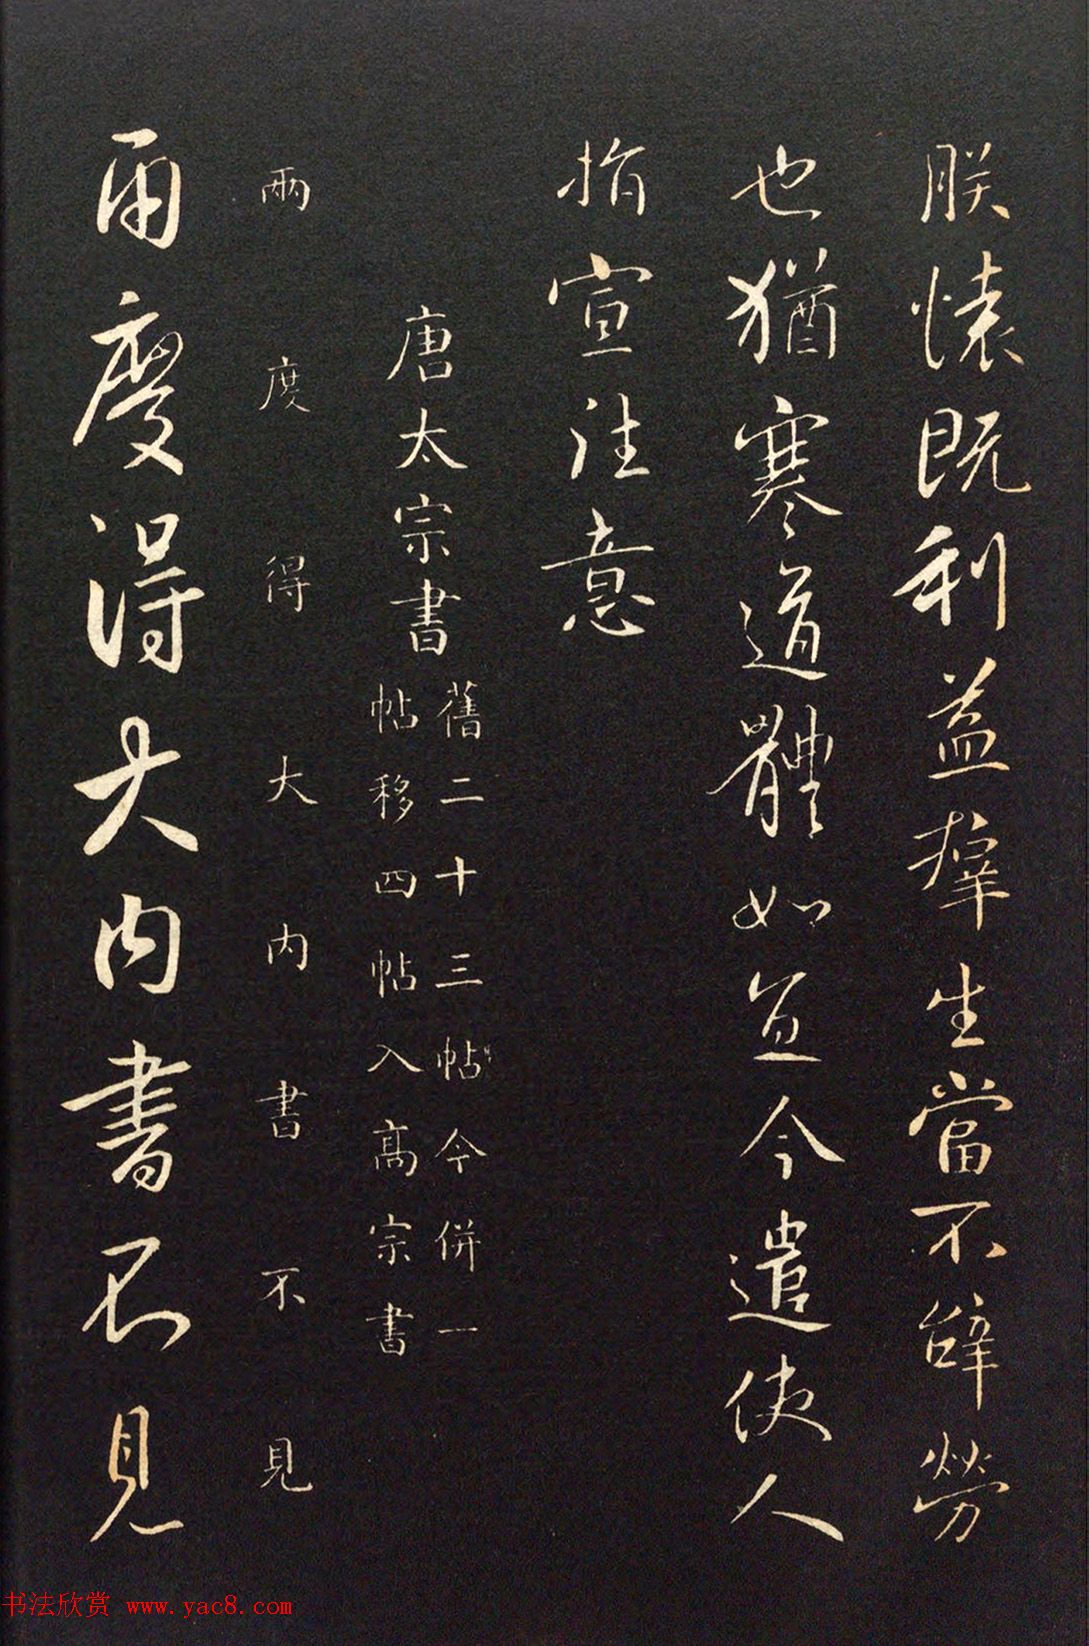 朕懐既利益羣生當不辭勞
也猶寒道體如宜今遣使人
指宣往意
唐太宗書
舊二十三帖今併一
帖移四帖入髙宗書
兩度得大内書不見
兩度得大内書不見
书法欣赏 www.yac8.com